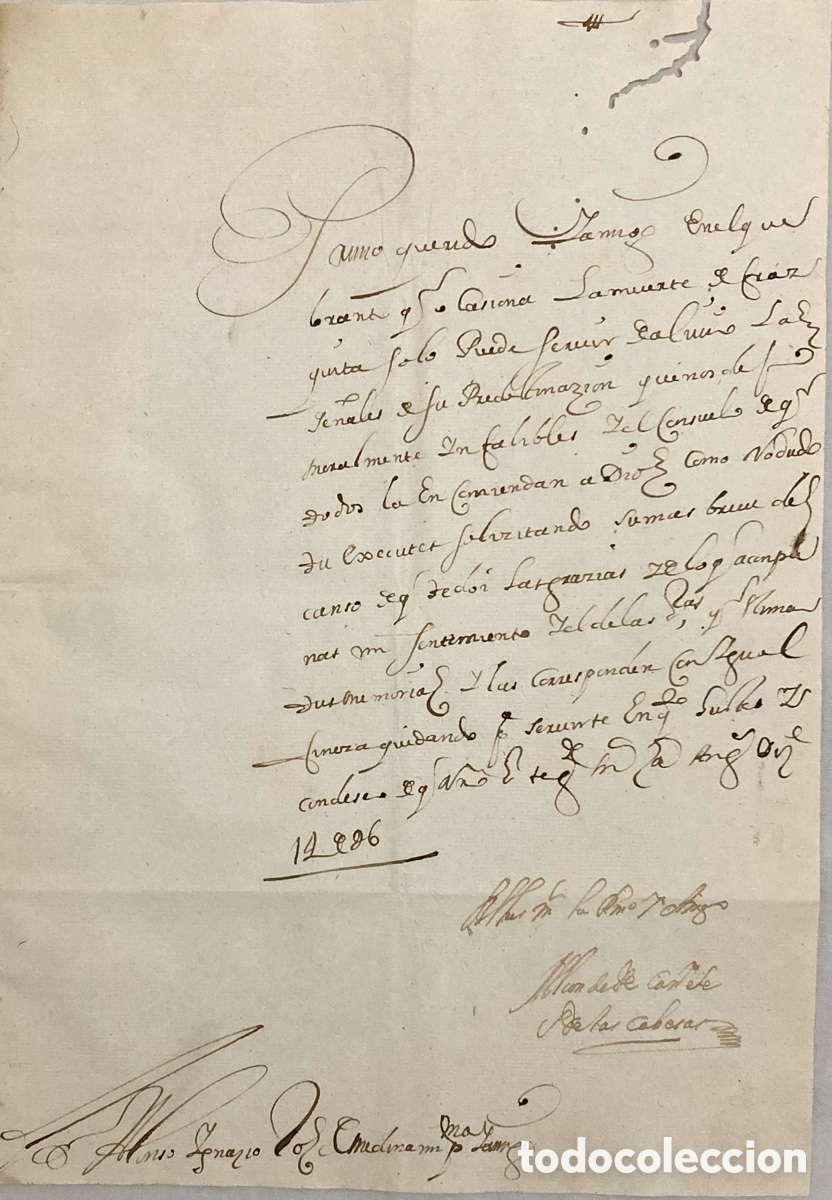 Primo querido y amigo en el que
brantº q.e ocasiona la muerte de Fraz
quita solo puede servir de alivio las
señales de su Predestinazion que nos de
moralmente infalibles y el consuelo de q.e
todos la encomiendan a Dios como no dudo
tu executes solizitando su mas breve des
canso de q te doi las grazias y de lo q acompa
ñas mi sentimiento y el de las
tus memorias y las corresponden con igual
fineza quedando p.a servirte en q.to gustes y
con deseo de q N.ro S.r te g.de m.s a.s
14 de 86
tu Primo y Amigo
El Conde de
de las Cabesas
D.n Alonso Ignazio de Medina mi Primo y amigo
todocoleccion